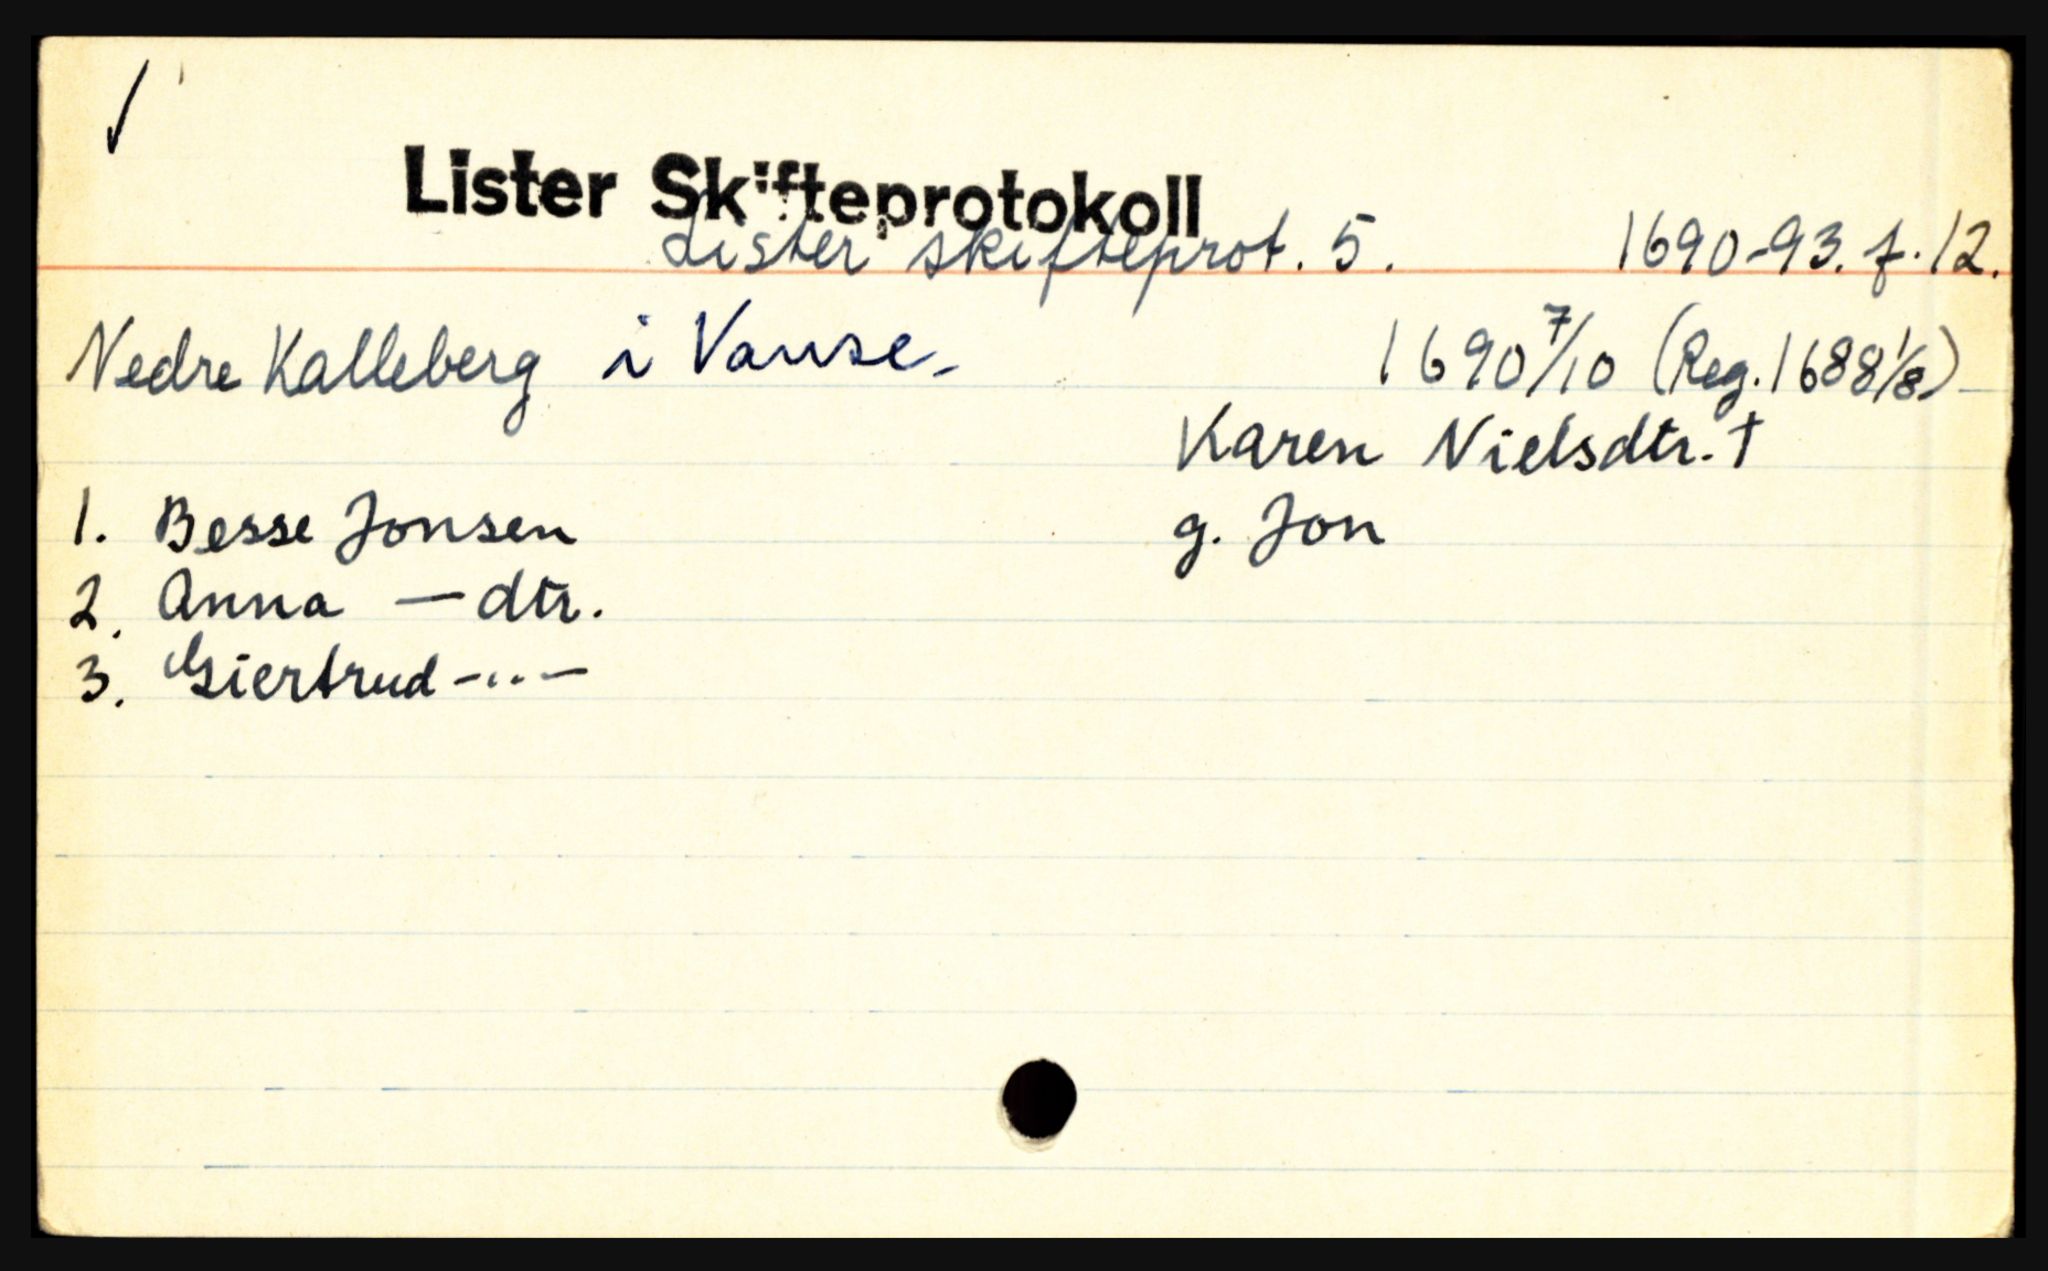 Lister Skifteprotokoll
Lister skifteprot. 5. 1690-93. f. 12.
Nedre Kalleberg i Vanse. 1690 7/10 (Reg. 1688 1/8)
Karen Nielsdtr. †
1. Besse Jonsen g. Jon
2. Anna — dtr.
3. Giertrud -..-